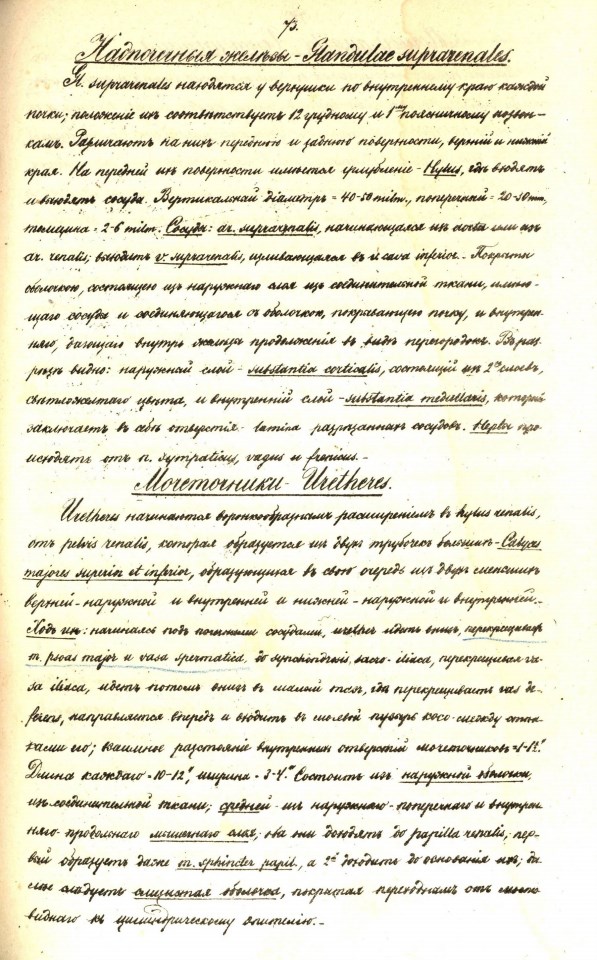 73.
Надпочечныя железы - Glandulae suprarenales.
Gl. suprarenales находятся у верхушки по внутреннему краю каждой
почки; положенiе ихъ соотвѣтствуетъ 12 грудному и 1му поясничному позвон-
камъ. Различаютъ на нихъ переднюю и заднюю поверхности, верхнiй и нижнiй
края. На передней ихъ поверхности имѣется углубленiе - Hylus, гдѣ входятъ
и выходятъ сосуды. Вертикальный дiаметръ = 40-50 milm., поперечный = 20-30 mm,
толщина = 2-6 milm. Сосуды: ar. suprarenalis, начинающаяся изъ aorta или изъ
ar. renalis; выходитъ v. suprarenalis, изливающаяся въ v. cava inferior. - Покрыты
оболочкою, состоящею изъ наружнаго слоя изъ соединительной ткани, имѣю-
щаго сосуды и соединяющагося съ оболочкою, покрывающею почку, и внутрен-
няго, дающаго внутрь железы продолженiя въ видѣ перегородокъ. Въ раз-
рѣзѣ видно: наружный слой - substantia corticalis, состоящiй изъ 2хъ слоевъ,
свѣтложелтаго цвѣта, и внутреннiй слой - substantia medullaris, который
заключаетъ въ себѣ отверстiя - lumina разрѣзанныхъ сосудовъ. Нервы про-
исходятъ отъ n. sympaticus, vagus и frenicus. -
Мочеточники - Uretheres.
Uretheres начинаются воронкообразнымъ расширенiемъ въ hylus renalis,
отъ pelvis renalis, которая образуется изъ двухъ трубочекъ большихъ - Calyces
majores superior et inferior, образующихся въ свою очередь изъ двухъ меньшихъ
верхней - наружной и внутренней и нижней - наружной и внутренней. -
Ходъ ихъ: начинаясь подъ почечными сосудами, urether идетъ внизъ, перекрещиваетъ
m. psoas major и vasa spermatica, до synchondresis, sacro-iliaca, перекрещивая va-
sa iliaca, идетъ потомъ внизъ въ малый тазъ, гдѣ перекрещиваетъ vas de-
ferens, направляется впередъ и входитъ въ мочевой пузырь косо между
его; взаимное разстоянiе внутреннихъ отверстiй мочеточниковъ = 1-1½"
Длина каждаго = 10-12", ширина = 3-4'''. Состоитъ изъ наружной оболочки,
изъ соединительной ткани; средней - изъ наружняго - поперечнаго и внутрен-
няго - продольнаго мышечнаго слоя; оба они доходятъ до papilla renalis; пер-
вый образуетъ даже m. sphincter papil., а 2й доходитъ до основанiя ихъ; да-
лѣе слѣдуетъ слизистая оболочка, покрытая переходнымъ отъ мосто-
виднаго къ цилиндрическому эпителiю. -